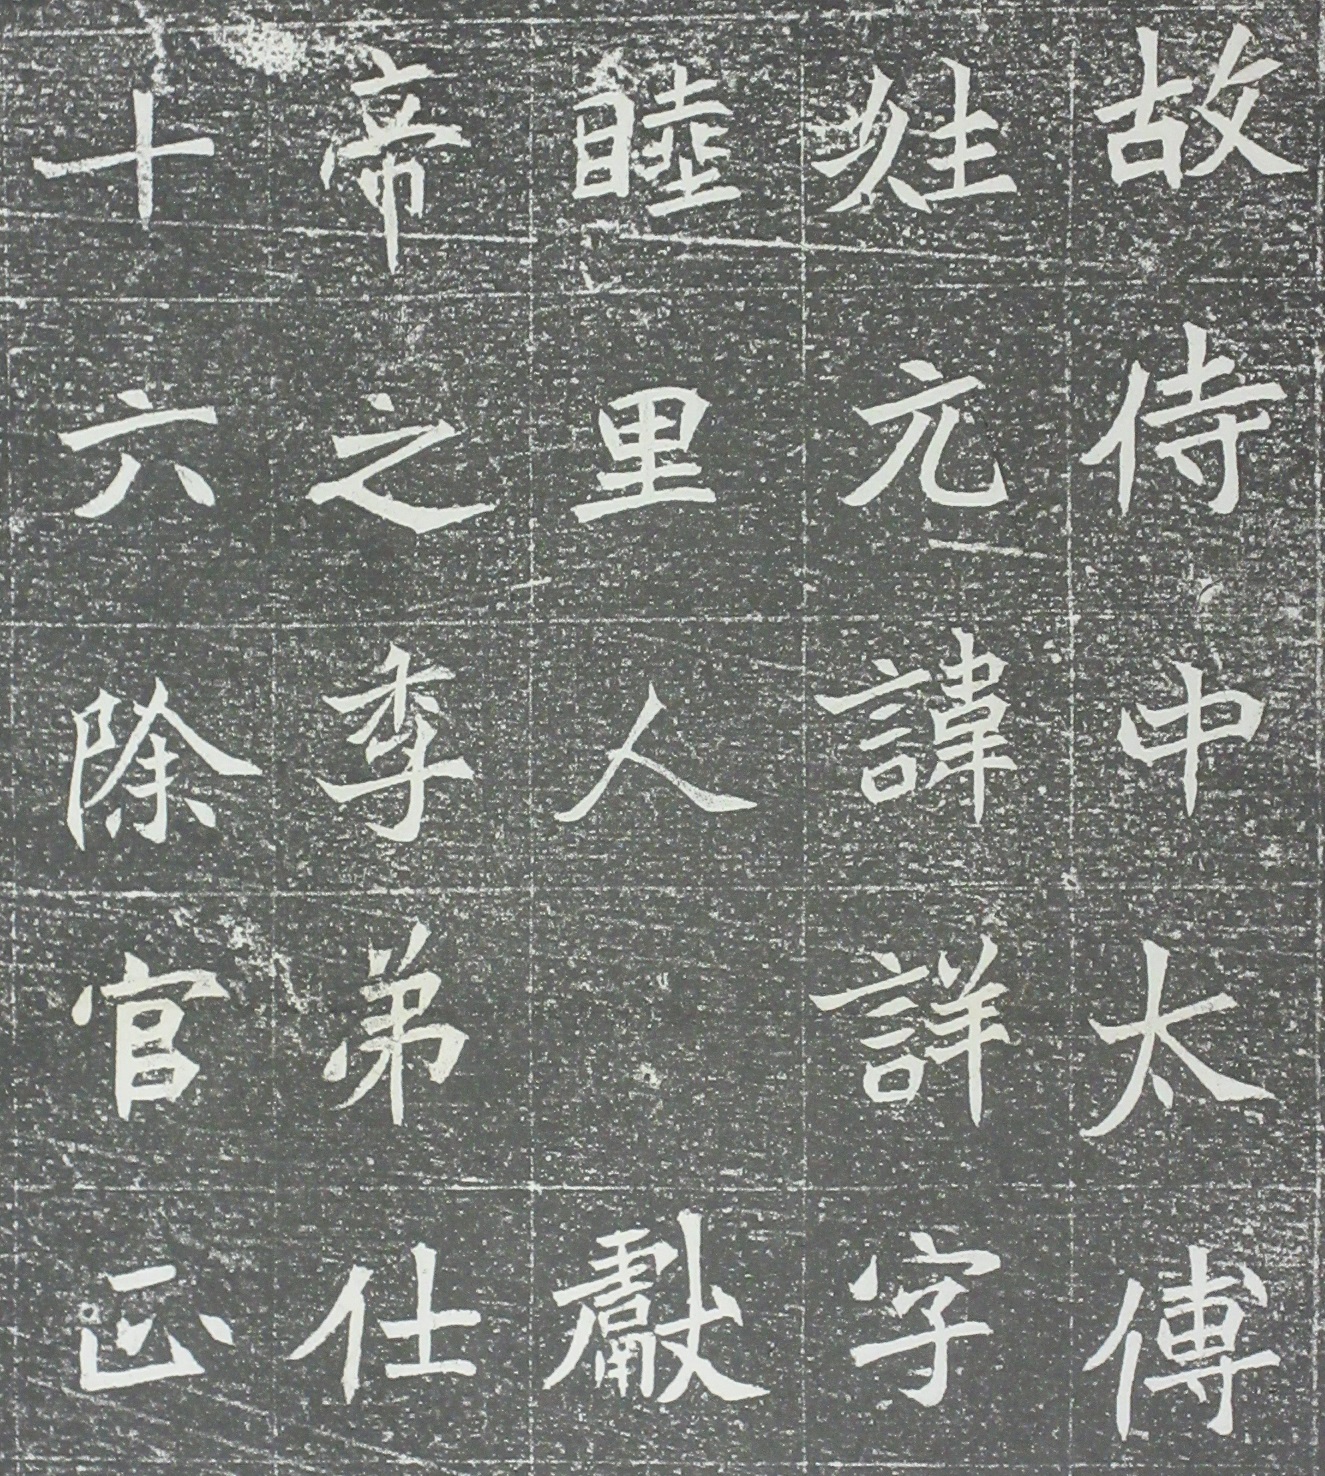 故侍中太傅
姓元諱詳字
睦里人獻
帝之季弟仕
十六除官正